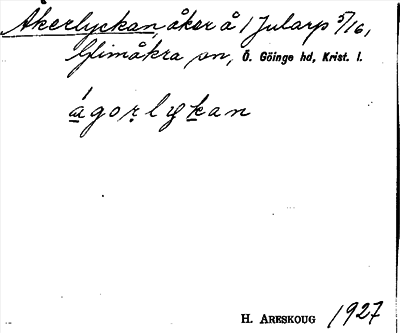 Åkerlyckan, åker å 1 Jularp 5/16,
Glimåkra sn, Ö. Göinge hd, Krist. l.
ágorlykan
H. ARESKOUG 1927